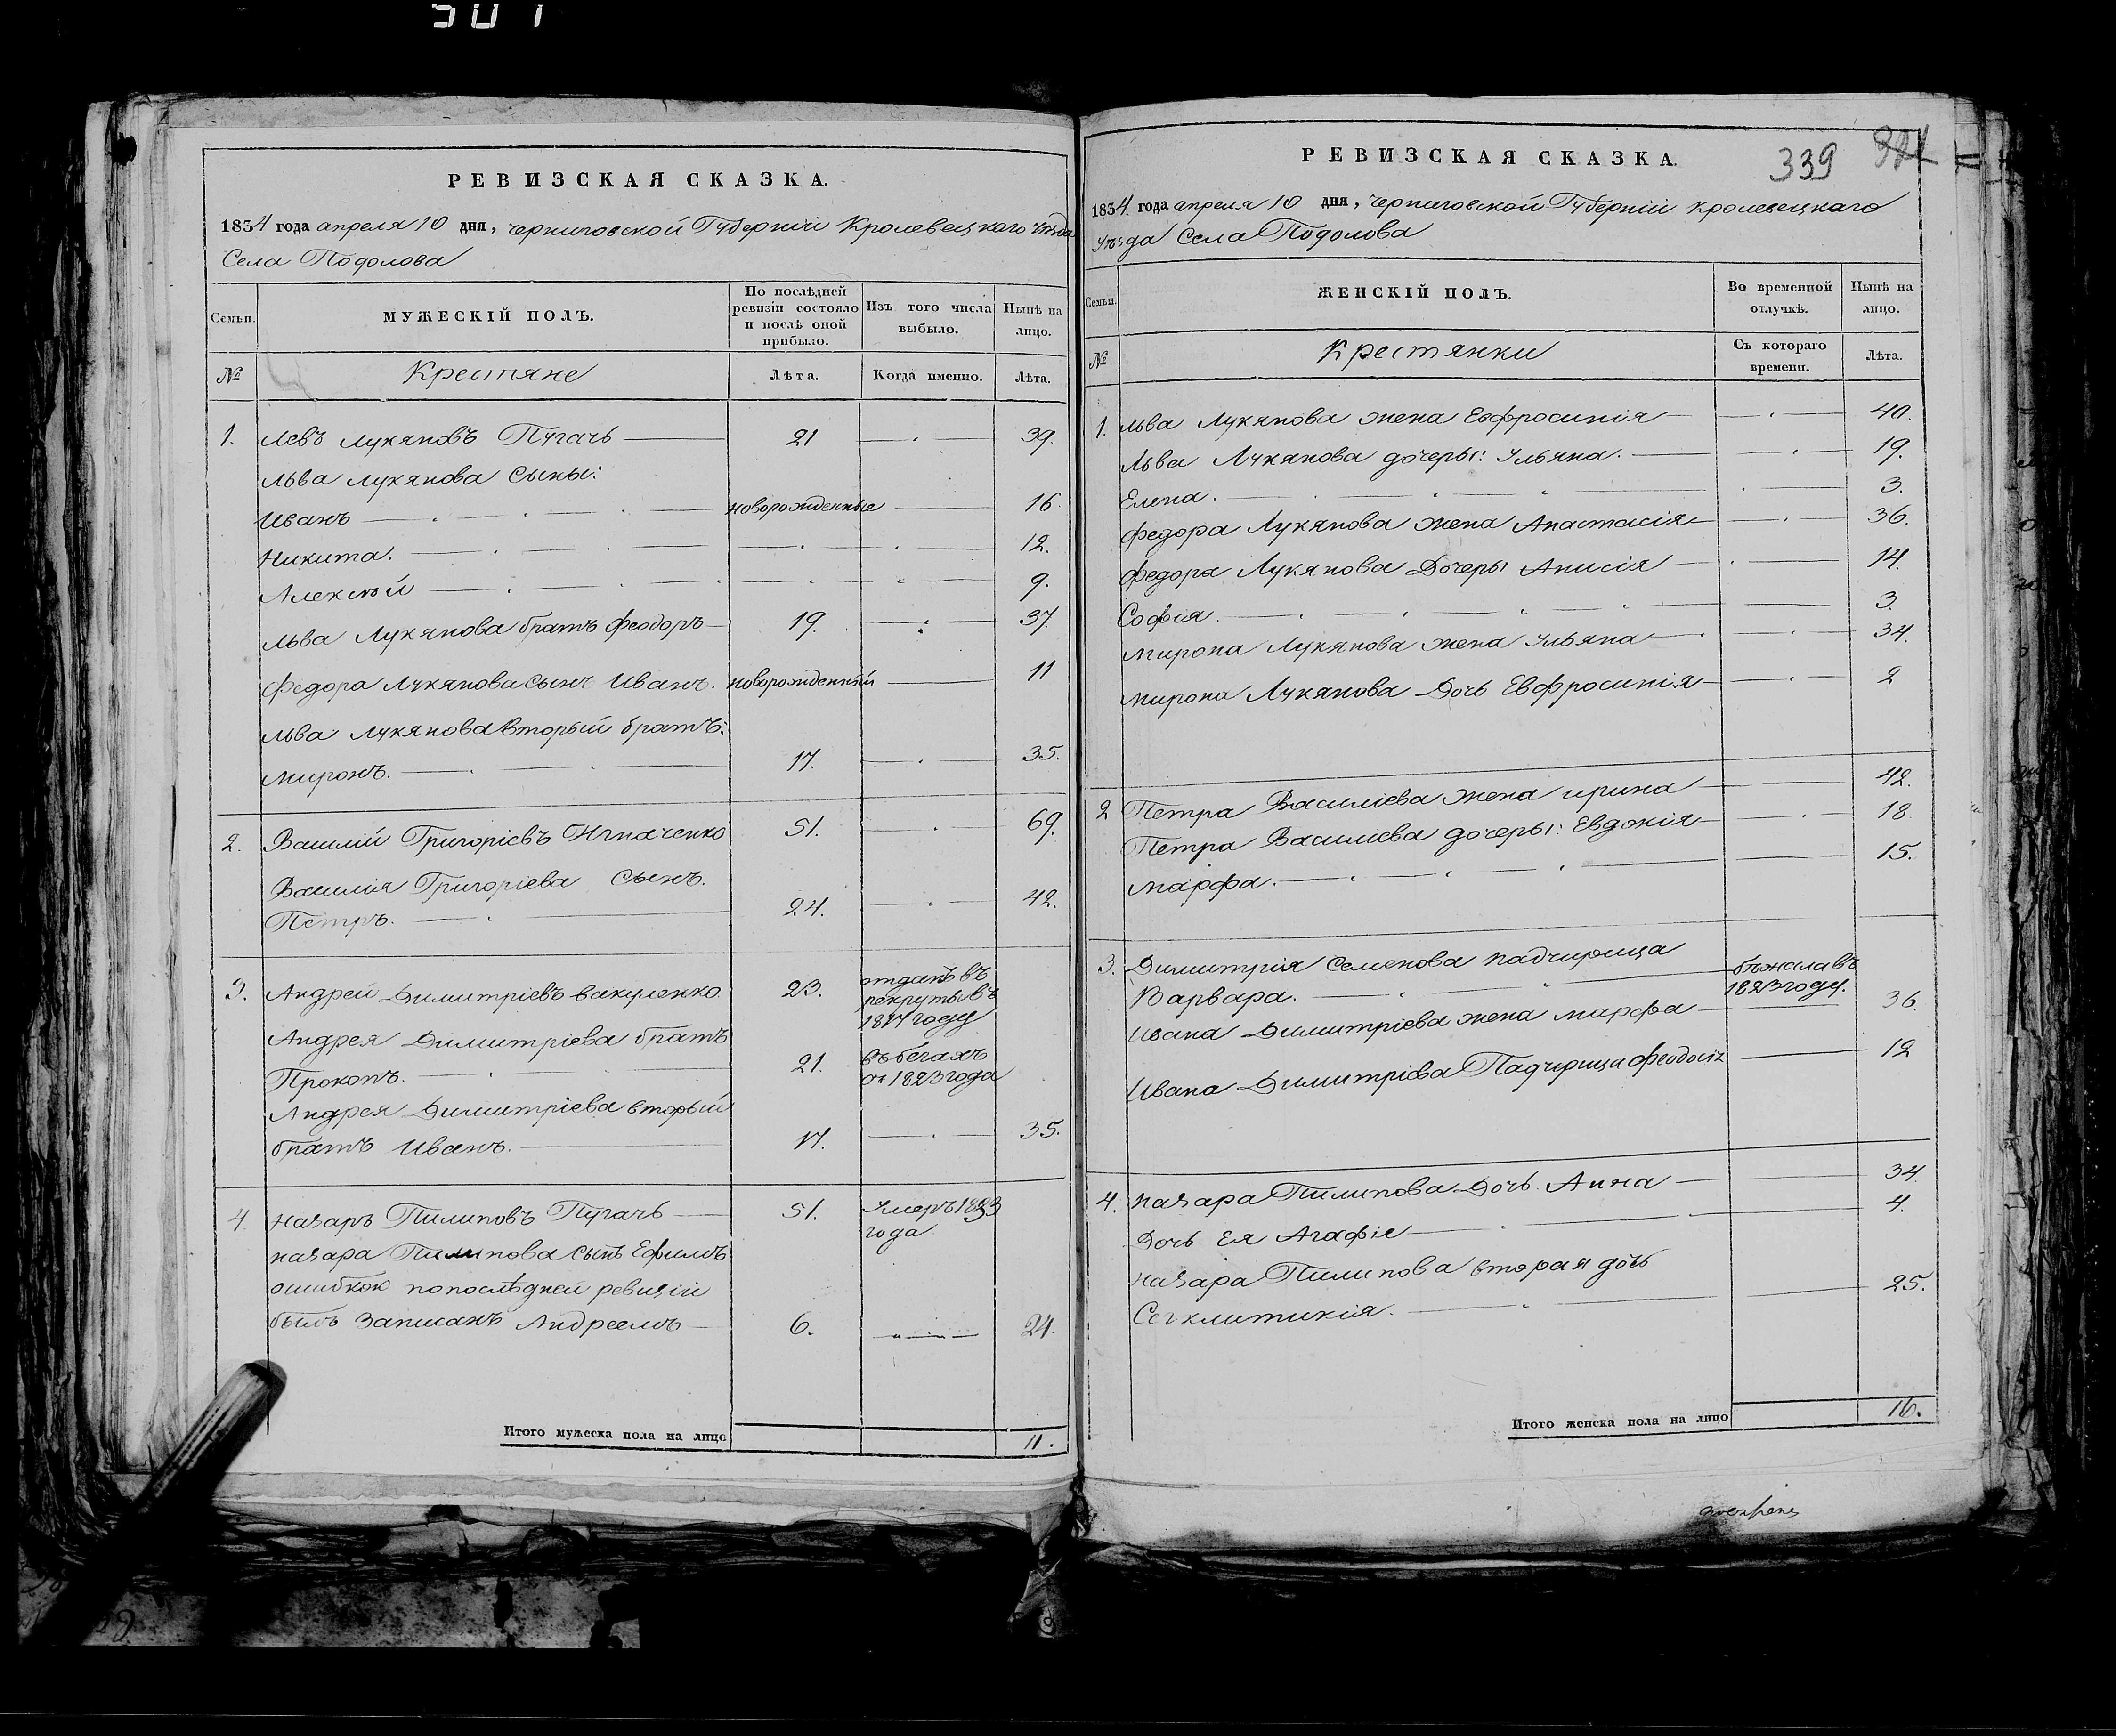 РЕВИЗСКАЯ СКАЗКА.
1834 года апреля 10 дня, Черниговской Губерніи Кролевецкаго Уѣзда
Села Подолова
Семьи. МУЖЕСКІЙ ПОЛЪ. По послѣдней ревизіи состояло и послѣ оной прибыло. Изъ того числа выбыло. Нынѣ на лицо.
№ Крестяне Лѣта. Когда именно. Лѣта.
1. Левъ Лукяновъ Пугачь 21 39.
Льва Лукянова Сыны:
Иванъ новорожденные 16.
Никита. 12.
Алексѣй 9.
Льва Лукянова братъ Феодоръ 19. 37.
Федора Лукянова сынъ Иванъ. новорожденный 11
Льва Лукянова вторый братъ:
Миронъ. 17. 35.
2. Василій Григоріевъ 51. 69.
Василія Григоріева Сынъ.
Петръ. 24. 42.
3. Андрей Димитріевъ Вакуленко 23. отданъ въ
рекруты въ
году
Андрея Димитріева братъ
Прокопъ. 21. въ бегахъ
от 1823 года
Андрея Димитріева вторый
братъ Иванъ. 17. 35.
4. Назаръ Пилиповъ Пугачь 51. Умеръ 1833
года
Назара Пилипова сынъ Ефимъ
ошибкою по послѣдней ревизіи
былъ Записанъ Андреемъ 6. 24.
Итого мужеска пола на лицо 11.
РЕВИЗСКАЯ СКАЗКА.
339
1834 года апреля 10 дня, Черниговской Губерніи Кролевецкаго
Уѣзда Села Подолова
Семьи. ЖЕНСКІЙ ПОЛЪ. Во временной отлучкѣ. Нынѣ на лицо.
№ Крестянки Съ котораго времени. Лѣта.
1. Льва Лукянова жена Евфросинія 40.
Льва Лукянова дочеры: Ульяна. 19.
Елена. 3.
Федора Лукянова жена Анастасія 36.
Федора Лукянова Дочеры Анисія 14.
Софія. 3.
Мирона Лукянова жена Ульяна 34.
Мирона Лукянова Дочь Евфросинія 2
2 Петра Василіева жена Ирина 42.
Петра Василиева дочеры: Евдокія 18.
Марфа. 15.
3. Димитрія Семенова падчирица
Варвара. бѣжала въ
1823 году.
Ивана Димитріева жена Марфа 36.
Ивана Димитріева Падчирица Феодосія 12
4. Назара Пилипова Дочь Анна 34.
Дочь Ея Агафіе 4.
Назара Пилипова вторая дочь
Сегклитикія. 25.
Итого женска пола на лицо 16.